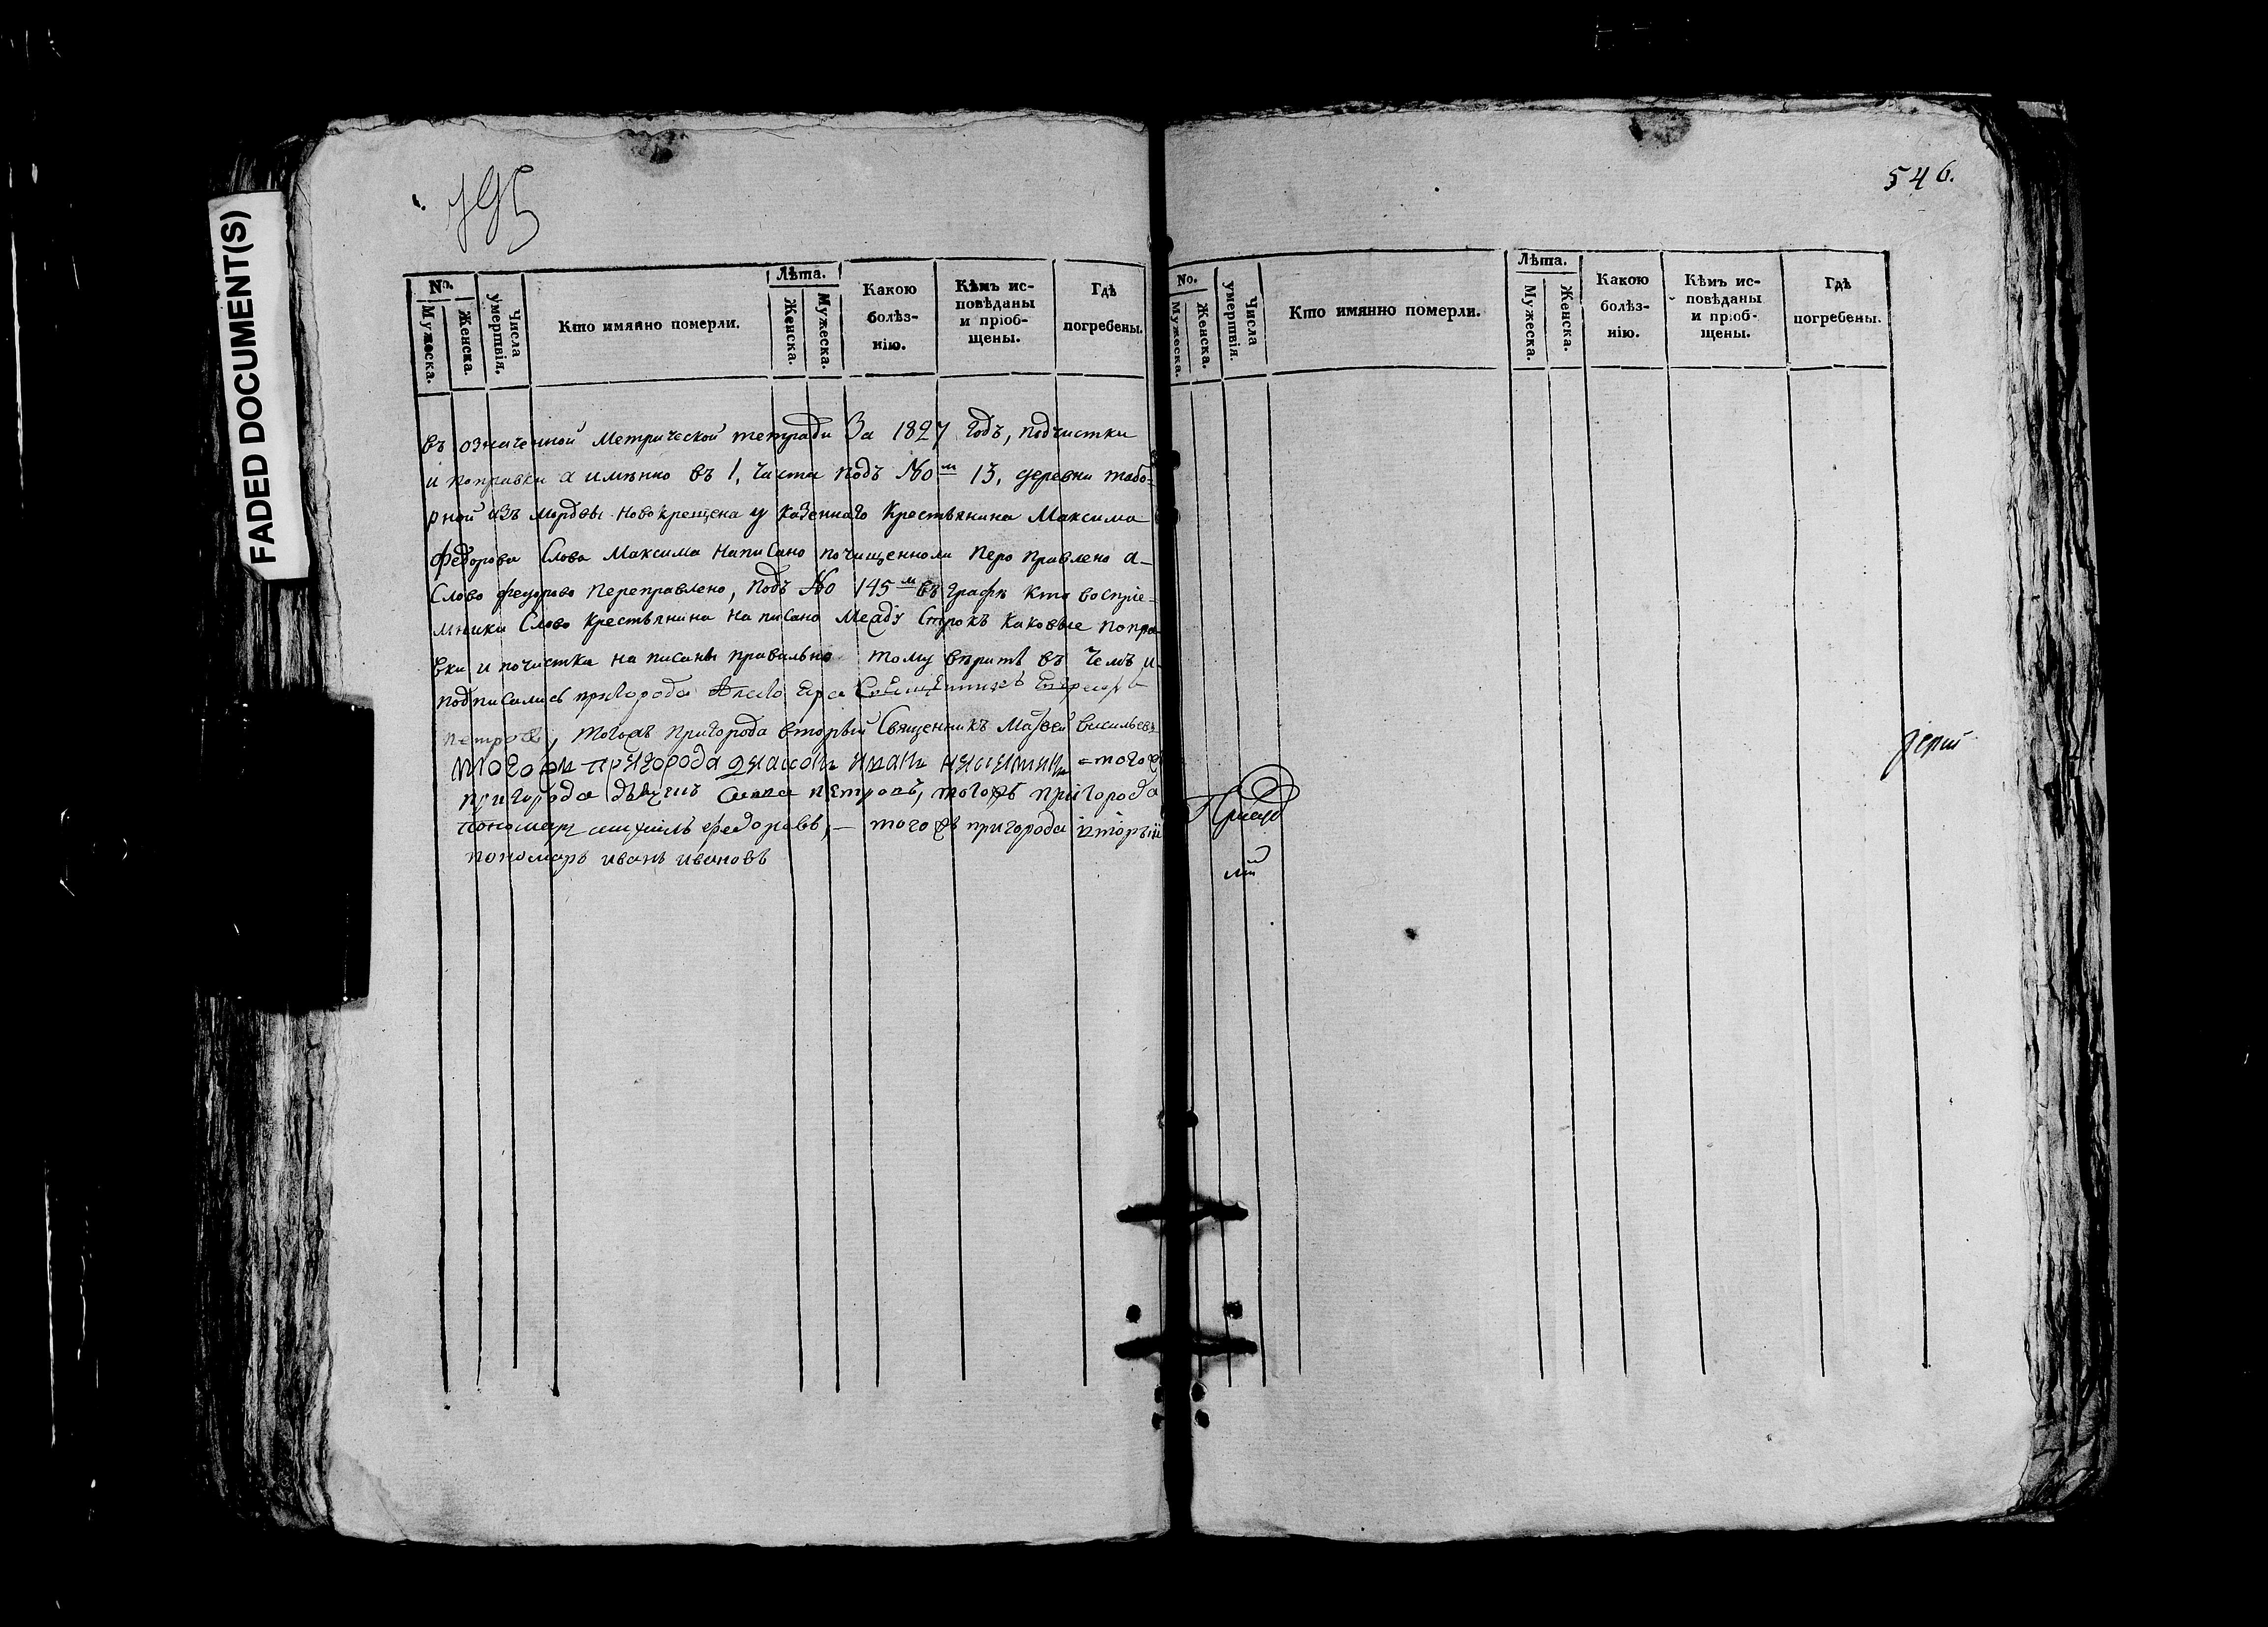 FADED DOCUMENT(S)
795
No.
Мужеска.
Женска.
Числа умертвія.
Кто имянно померли.
Лѣта.
Женска.
Мужеска.
Какою болѣз-
нію.
Кѣмъ ис-
повѣданы
и пріоб-
щены.
Гдѣ
погребены.
въ означенной метрической тетради За 1827 годъ, подчистки
и поправки а имѣнно въ 1, части подъ No м 13, деревни табо-
рной изъ мордвы новокрещена у казеннаго крестьянина Максима
Федорова Слова Максима написано почищенноли перо правлено а-
Слово федорово переправлено, подъ No 145 м въ графѣ кто воспріе-
мники Слово крестьянина на писано между строкъ каковые попра-
вки и почистка на писаны правильно тому вѣрить въ чемъ и-
подписались пригорода Священникъ
петровъ, тогожъ пригорода вторый Священникъ Матвей васильевъ
тогожъ пригорода диаконъ иванъ никитинъ = тогожъ
пригорода петровъ, тогожъ пригорода
пономарь михаилъ федоровъ, — тогожъ пригорода вторый
пономарь иванъ ивановъ
546.
No.
Мужеска.
Женска.
Числа
умертвія.
Кто имянно померли.
Лѣта.
Мужеска.
Женска.
Какою
болѣз-
нію.
Кѣмъ ис-
повѣданы
и пріоб-
щены.
Гдѣ
погребены.